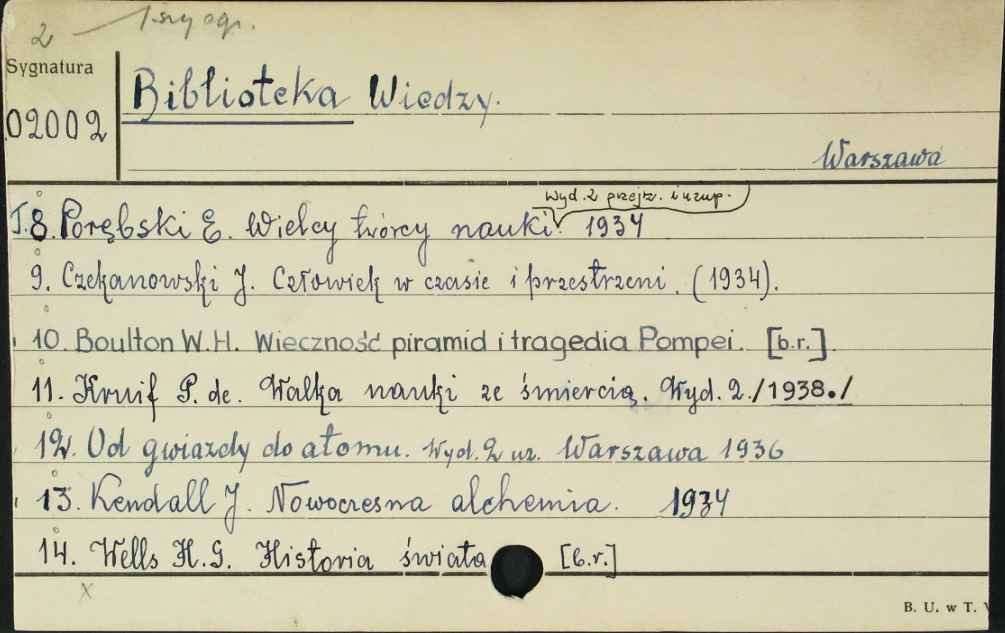 2 — 1 szy egz.
Sygnatura
02002
Biblioteka Wiedzy.
Warszawa
wyd. 2 przejrz. i uzup.
T.8. Porębski E. Wielcy twórcy nauki. 1934
9. Czekanowski J. Człowiek w czasie i przestrzeni. (1934).
10. Boulton W.H. Wieczność piramid i tragedia Pompei. [b.r.].
11. Kruif P. de. Walka nauki ze śmiercią. Wyd. 2. /1938./
12. Od gwiazdy do atomu. Wyd. 2 uz. Warszawa 1936
13. Kendall J. Nowoczesna alchemia. 1934
14. Wells H.G. Historia świata [b.r.]
x
B. U. w T.